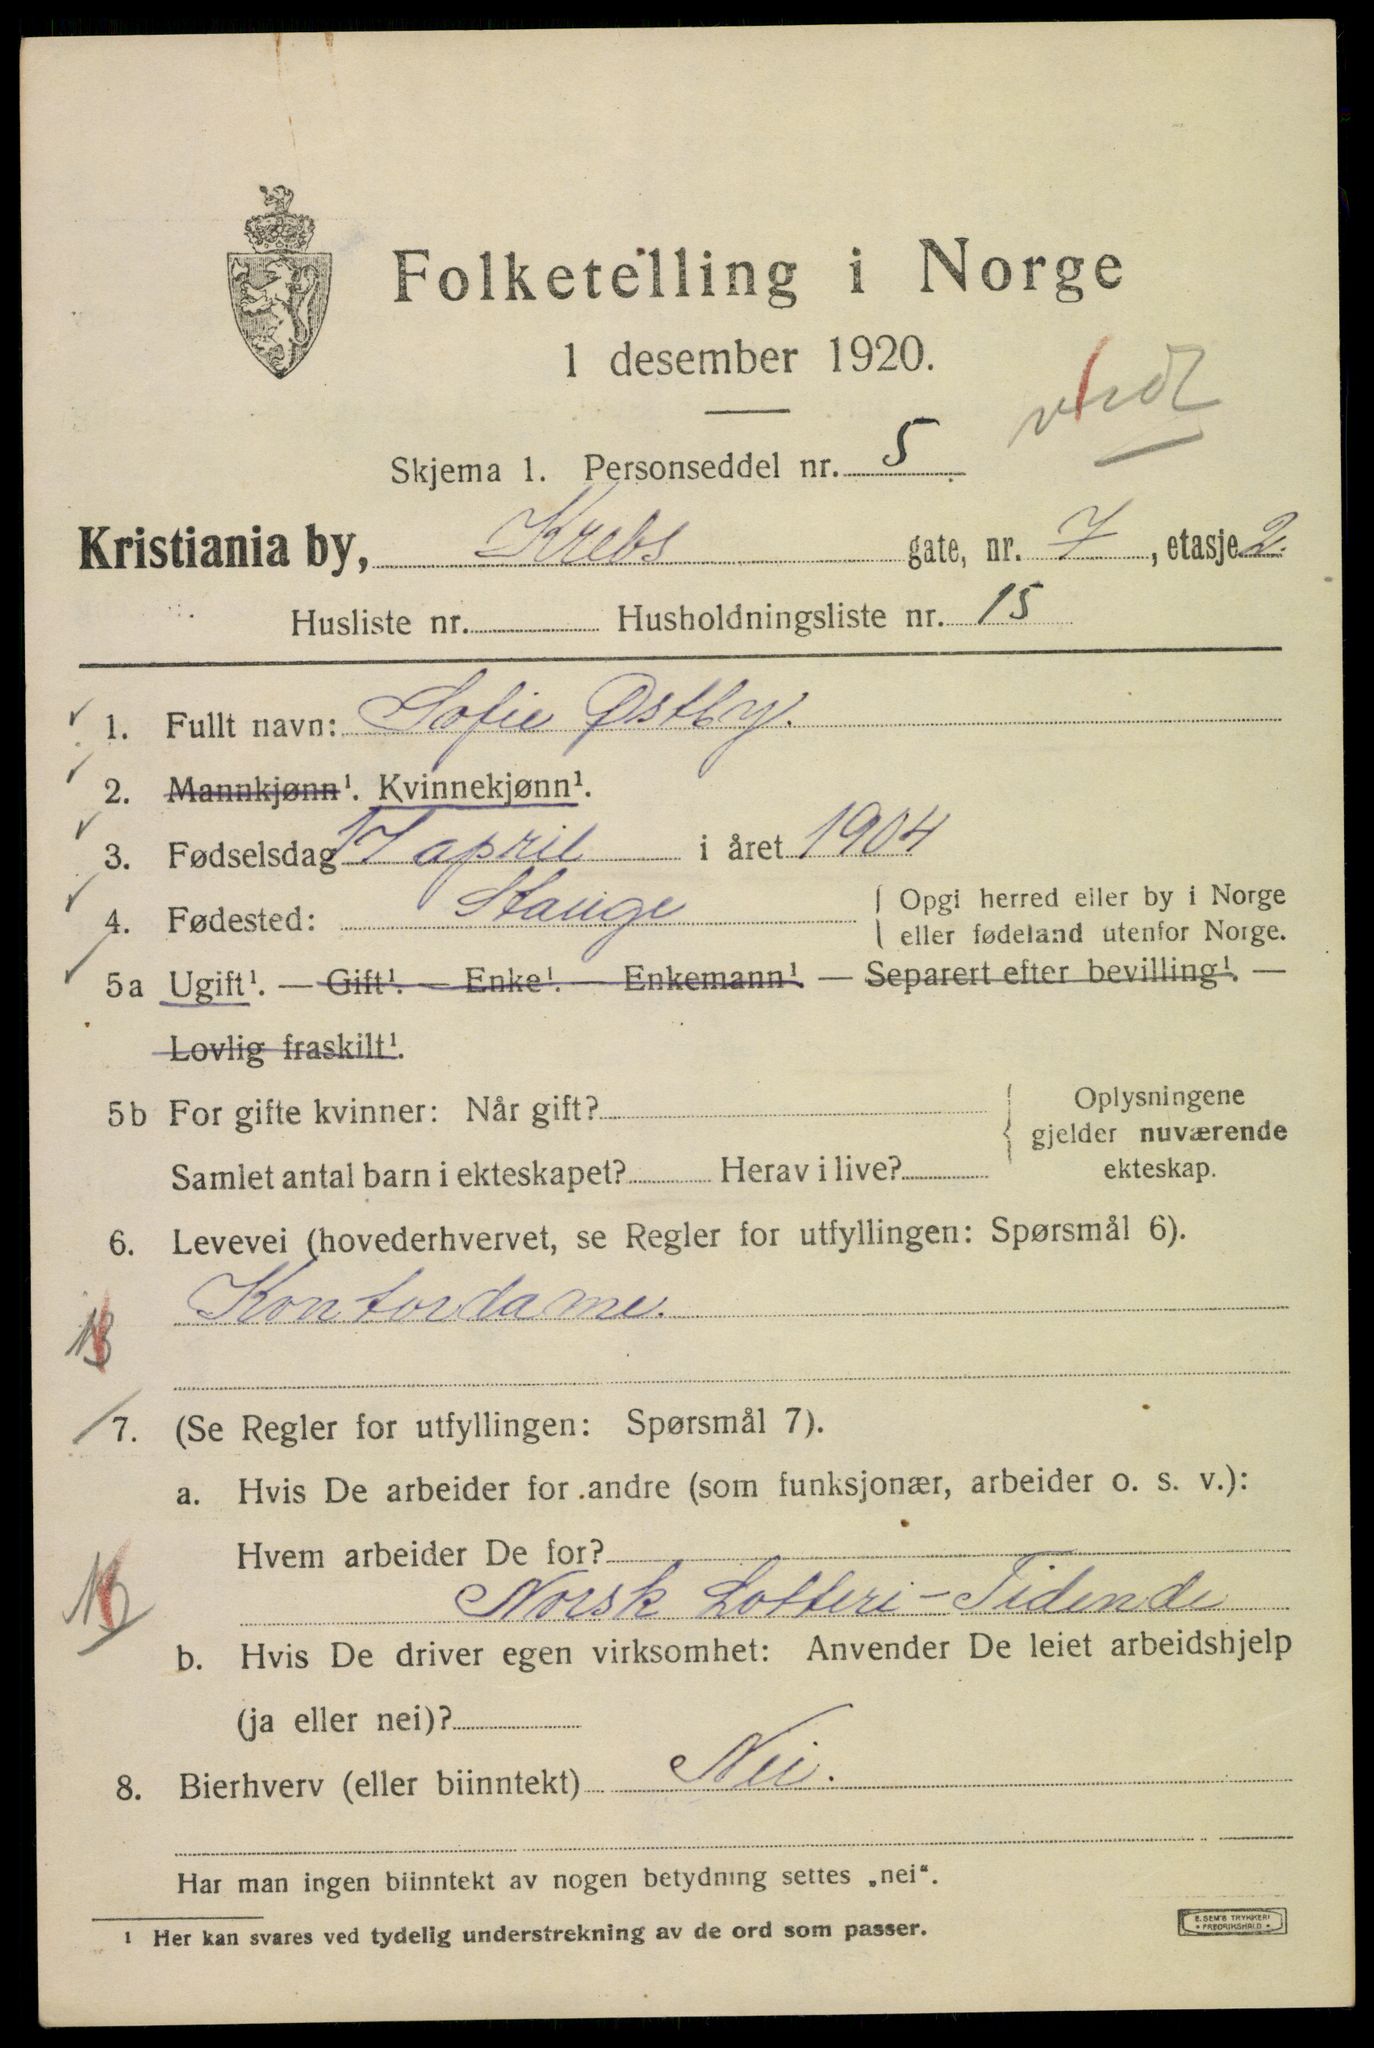 Folketelling i Norge
1 desember 1920.
Skjema 1. Personseddel nr. 5
Kristiania by, Krebs gate, nr. 7, etasje 2.
Husliste nr. Husholdningsliste nr. 15
1. Fullt navn: Sofie Østby.
2. Mannkjønn¹. Kvinnekjønn¹.
3. Fødselsdag 17 april i året 1904
4. Fødested: Stange { Opgi herred eller by i Norge
eller fødeland utenfor Norge.
5a Ugift¹. — Gift¹. — Enke¹. — Enkemann¹. — Separert efter bevilling¹. —
Lovlig fraskilt¹.
5b For gifte kvinner: Når gift? { Oplysningene
gjelder nuværende
Samlet antal barn i ekteskapet? Herav i live? ekteskap.
6. Levevei (hovederhvervet, se Regler for utfyllingen: Spørsmål 6).
Kontordame.
7. (Se Regler for utfyllingen: Spørsmål 7).
a. Hvis De arbeider for andre (som funksjonær, arbeider o. s. v.):
Hvem arbeider De for?
Norsk Lotteri-Tidende
b. Hvis De driver egen virksomhet: Anvender De leiet arbeidshjelp
(ja eller nei)?
8. Bierhverv (eller biinntekt) Nei.
Har man ingen biinntekt av nogen betydning settes „nei“.
¹ Her kan svares ved tydelig understrekning av de ord som passer.
E. SEM'S TRYKKERI
* FREDRIKSHALD *